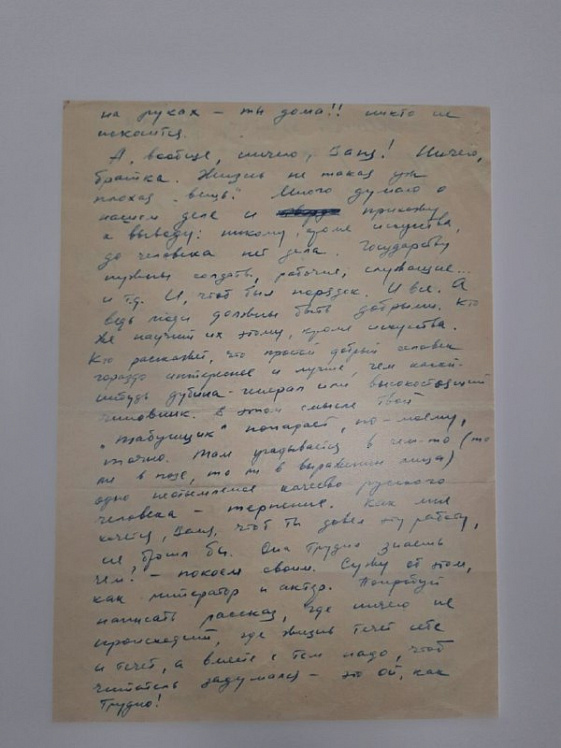 на руках — ты дома!! никто не
искоится.
А, вообще, ничего, Ваня! Ничего,
братка. Жизнь не такая уж
плохая "вещь". Много думаю о
нашем деле и прихожу
к выводу: никому, кроме искусства,
до человека нет дела. Государству
нужны солдаты, рабочие, служащие...
и т.д. И, чтоб был порядок. И все. А
ведь люди должны быть добрыми. Кто
же научит их этому, кроме искусства.
Кто расскажет, что простой добрый человек
гораздо интереснее и лучше, чем какой-
нибудь дубина-генерал или высокостоящий
чиновник. В этом смысле твой
"Табунщик" попарает, по-моему,
точно. Там угадывается в чем-то (то
ли в позе, то ли в выражении лица)
одно неотъемлемое качество русского
человека — терпение. Как мне
хочется, Ваня, чтоб ты довел эту работу,
не бросил бы. Она трудна знаешь
чем? — покоем своим. Сужу об этом,
как литератор и актер. Попробуй
написать рассказ, где ничего не
происходит, где жизнь течет себе
и течет, а вместе с тем надо, чтоб
читатель задумался — это ой, как
трудно!